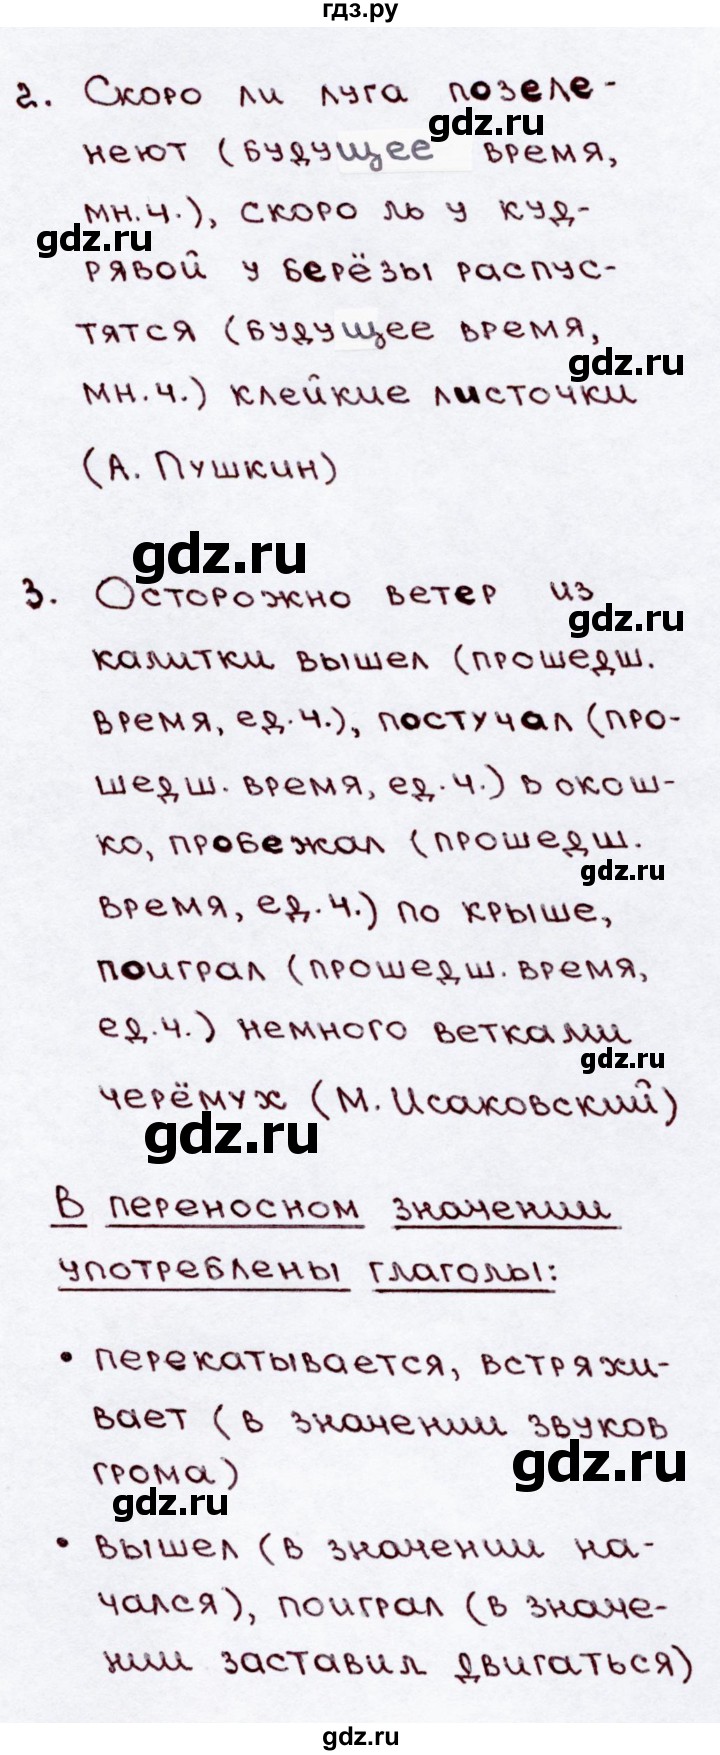 гдз.ру
2. Скоро ли луга позеле-
gdz.ru
неют (будущее время,
мн.ч.), скоро ль у куд-
gdz.ru
рявой у берёзы распус-
тятся (будущее время,
gdz.ru
мн.ч.) клейкие листочки
(А. Пушкин)
gdz.ru
3. Осторожно ветер из
gdz.ru
калитки вышел (прошедш.
время, ед.ч.), постучал (про-
шедш. время, ед.ч.) в окош-
ко, пробежал (прошедш.
gdz.ru
время, ед.ч.) по крыше,
поиграл (прошедш. время,
ед.ч.) немного ветками
gdz.ru
черёмух (М. Исаковский)
gdz.ru
В переносном значении
употреблены глаголы:
• перекатывается, встряхи-
вает (в значении звуков
gdz.ru
грома)
gdz.ru
• вышел (в значении на-
чался), поиграл (в значе-
нии заставил двигаться)
gdz.ru